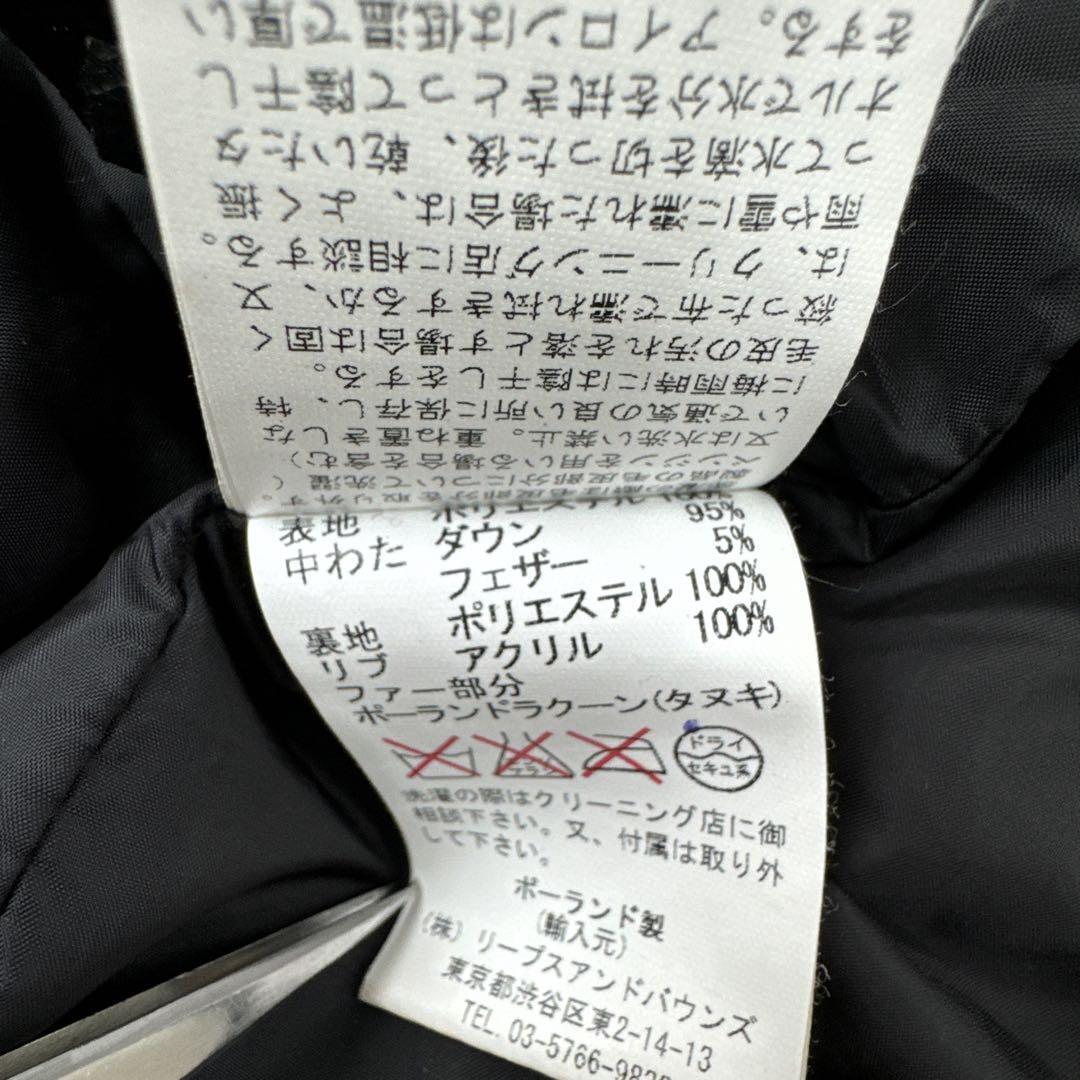 表地 ポリエステル
中わた ダウン 95%
フェザー 5%
裏地 ポリエステル 100%
リブ アクリル 100%
ファー部分
ポーランドラクーン(タヌキ)
エンソサラシ
ドライ
セキユ系
洗濯の際はクリーニング店に御
相談下さい。又、付属は取り外
して下さい。
ポーランド製
(輸入元)
(株)リーブスアンドバウンズ
東京都渋谷区東2-14-13
TEL.03-5766-98
製品の毛皮部分について洗濯(
ベンジンを用いる場合を含む)
又は水洗い禁止。重ね置きしな
いで通気の良い所に保存し、特
に梅雨時には陰干しをする。
毛皮の汚れを落とす場合は固く
絞った布で濡れ拭きするか、又
は、クリーニング店に相談する。
雨や雪に濡れた場合は、よく振
って水滴を切った後、乾いたタ
オルで水分を拭きとって陰干し
をする。アイロンは低温で厚い